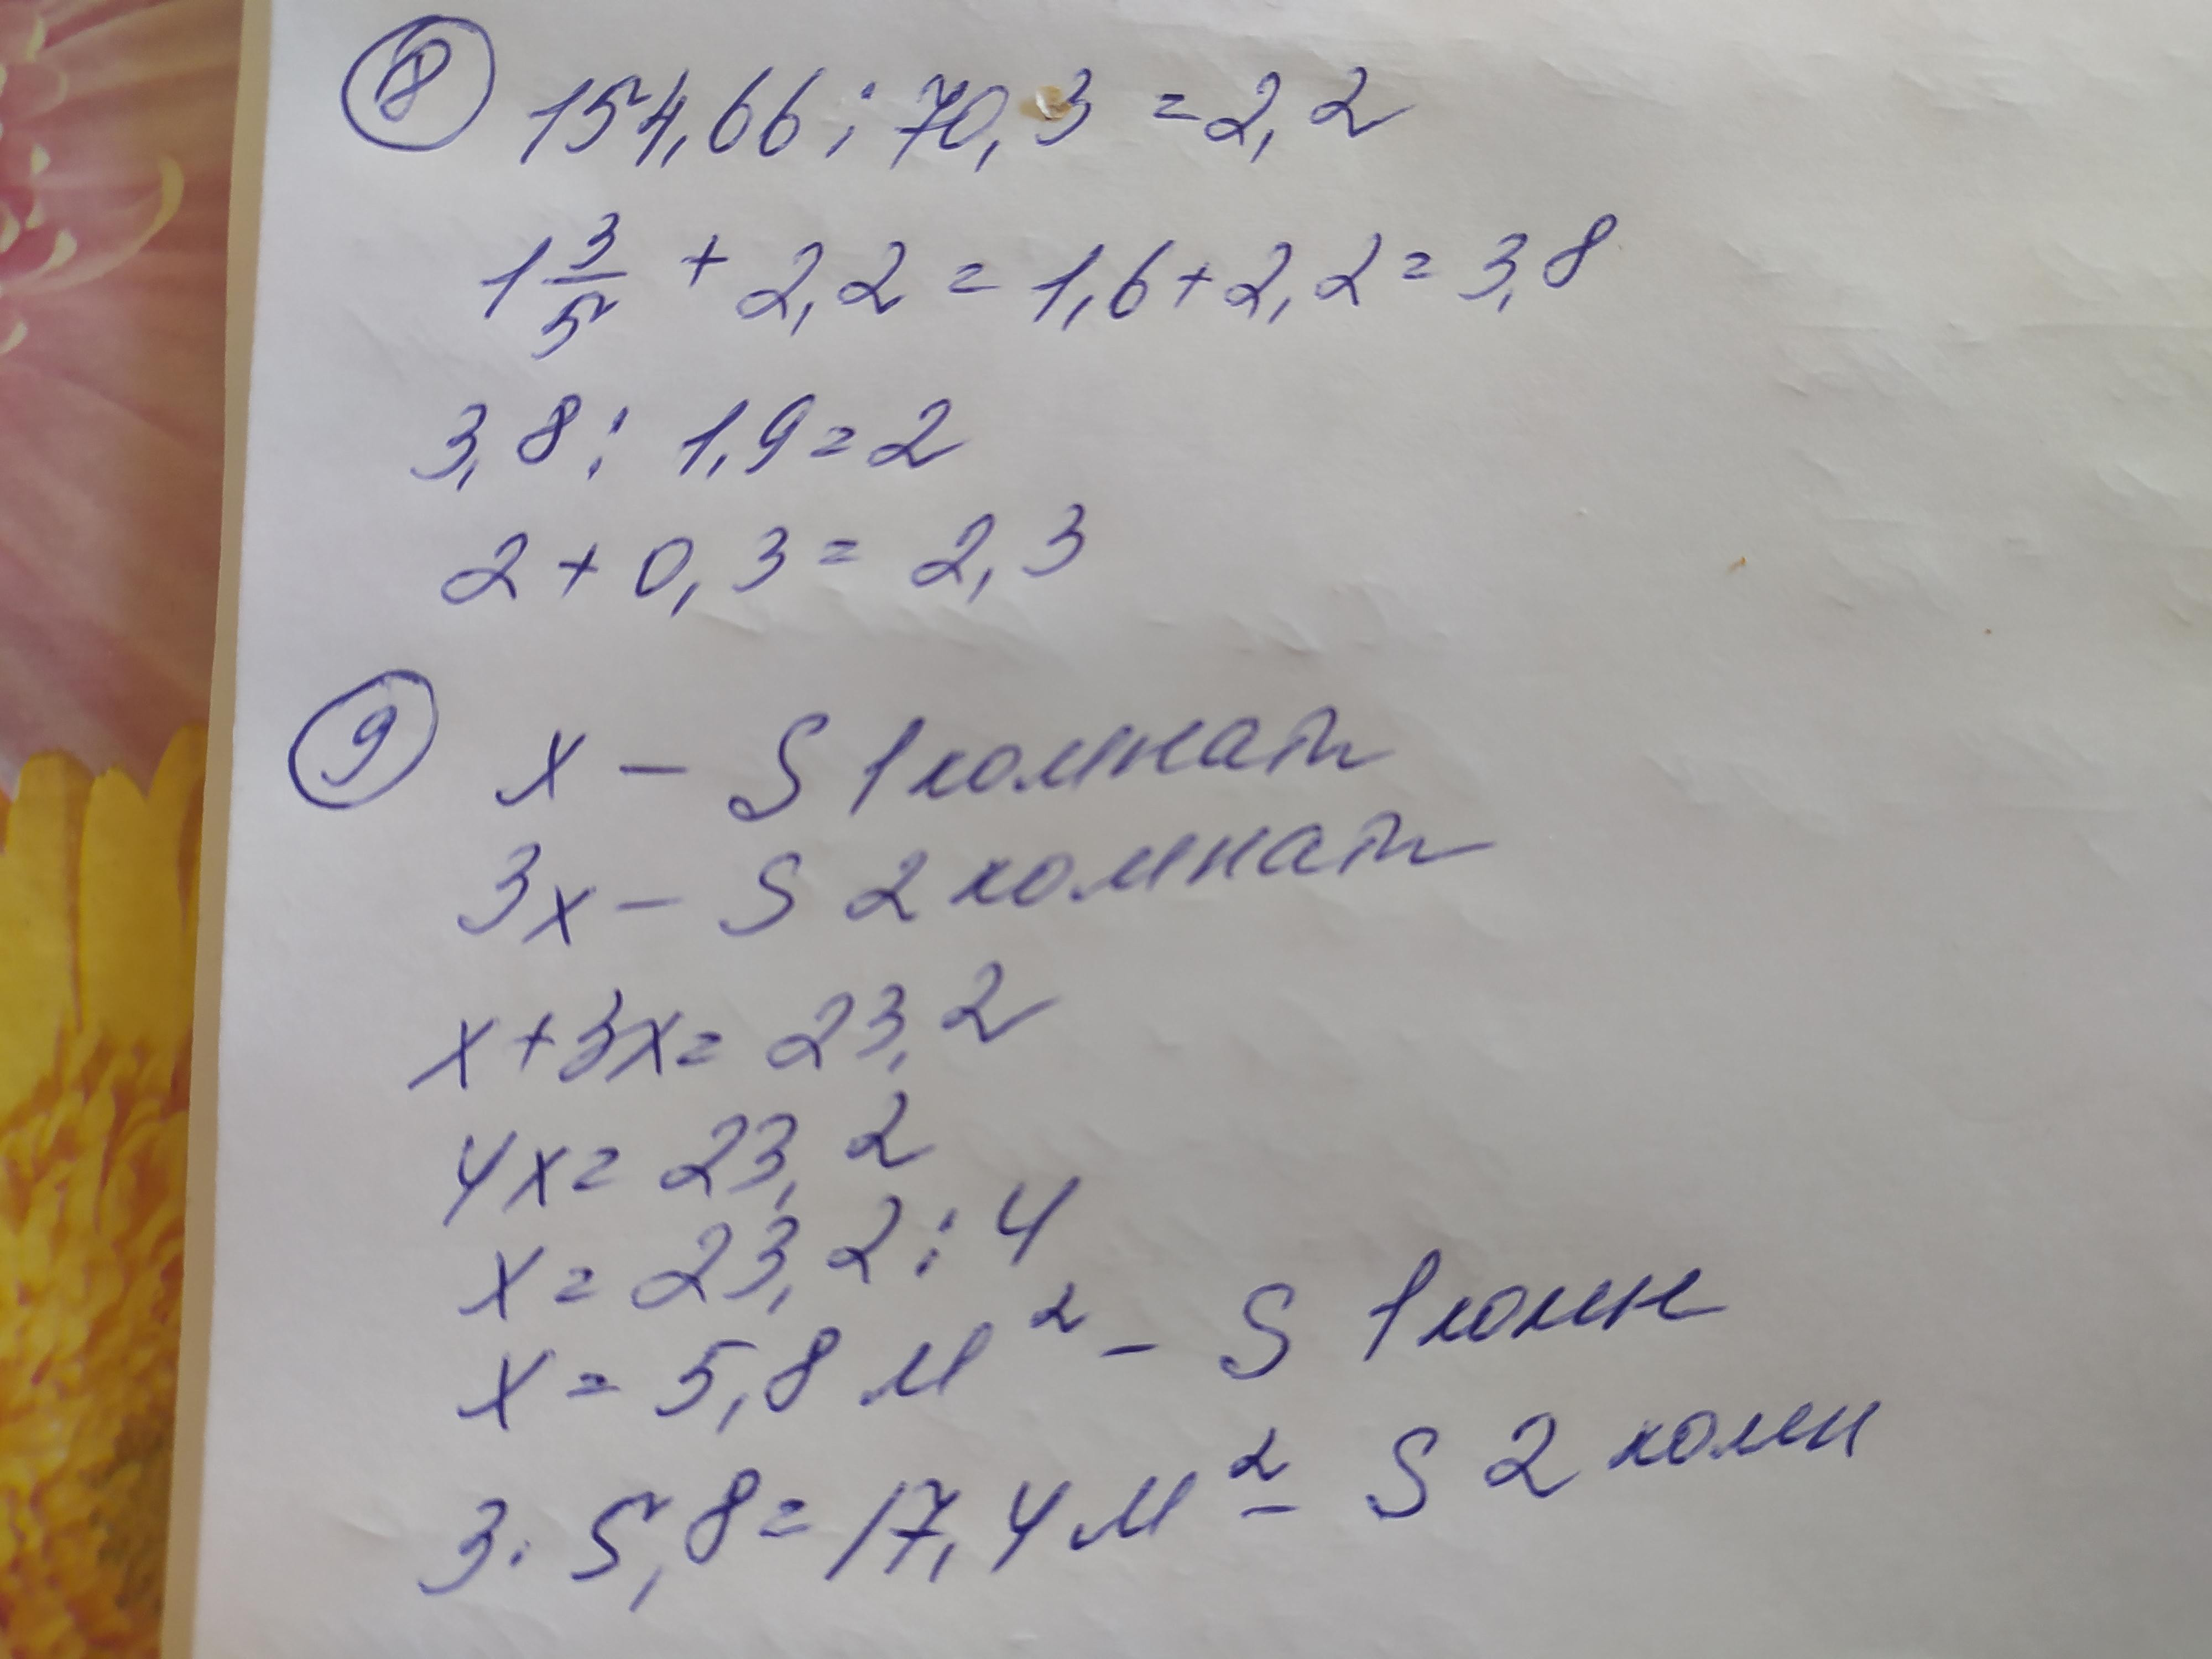 8 154,66 : 70,3 = 2,2
1 3/5 + 2,2 = 1,6 + 2,2 = 3,8
3,8 : 1,9 = 2
2 + 0,3 = 2,3
9 x – S 1 комнат
3x – S 2 комнат
x + 3x = 23,2
4x = 23,2
x = 23,2 : 4
x = 5,8 м² – S 1 комн
3 · 5,8 = 17,4 м² – S 2 комн